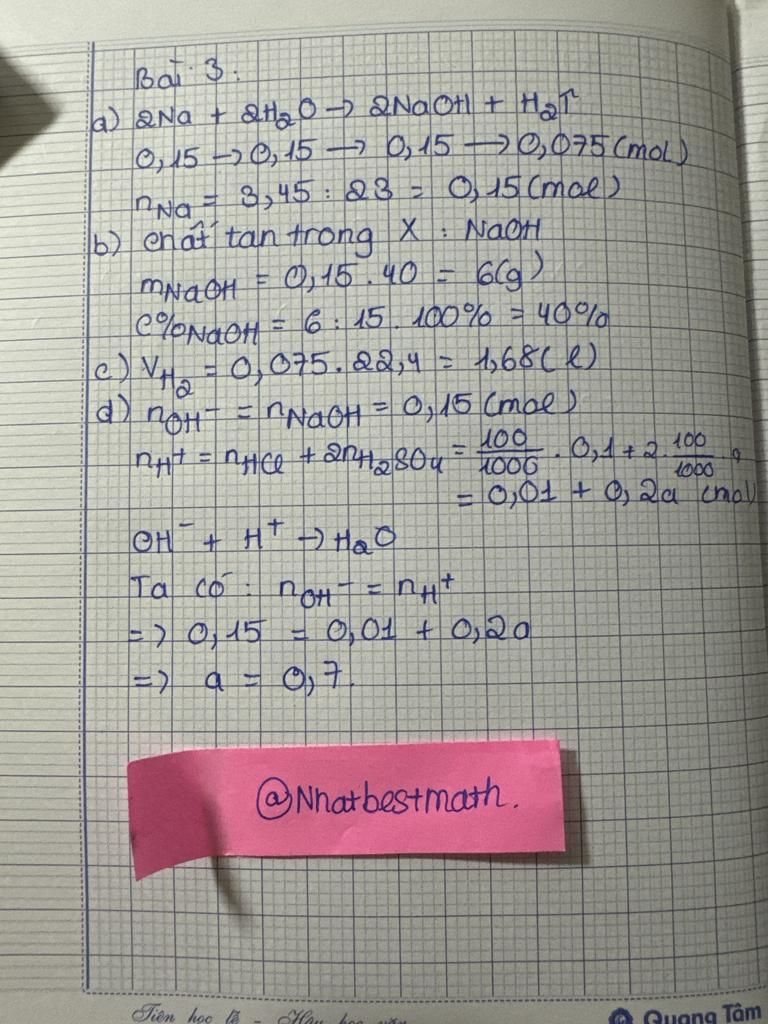 Bài 3:
a) 2Na + 2H₂O → 2NaOH + H₂↑
0,15 → 0,15 → 0,15 → 0,075 (mol)
nNa = 3,45 : 23 = 0,15 (mol)
b) chất tan trong X : NaOH
mNaOH = 0,15 . 40 = 6(g)
C%NaOH = 6 : 15 . 100% = 40%
c) VH₂ = 0,075 . 22,4 = 1,68 (l)
d) nOH⁻ = nNaOH = 0,15 (mol)
nH⁺ = nHCl + 2nH₂SO₄ = 100/1000 . 0,1 + 2 . 100/1000 . a
= 0,01 + 0,2a (mol)
OH⁻ + H⁺ → H₂O
Ta có : nOH⁻ = nH⁺
=> 0,15 = 0,01 + 0,2a
=> a = 0,7.
@Nhatbestmath.
Tiên học lễ - Hậu học văn
Quang Tâm